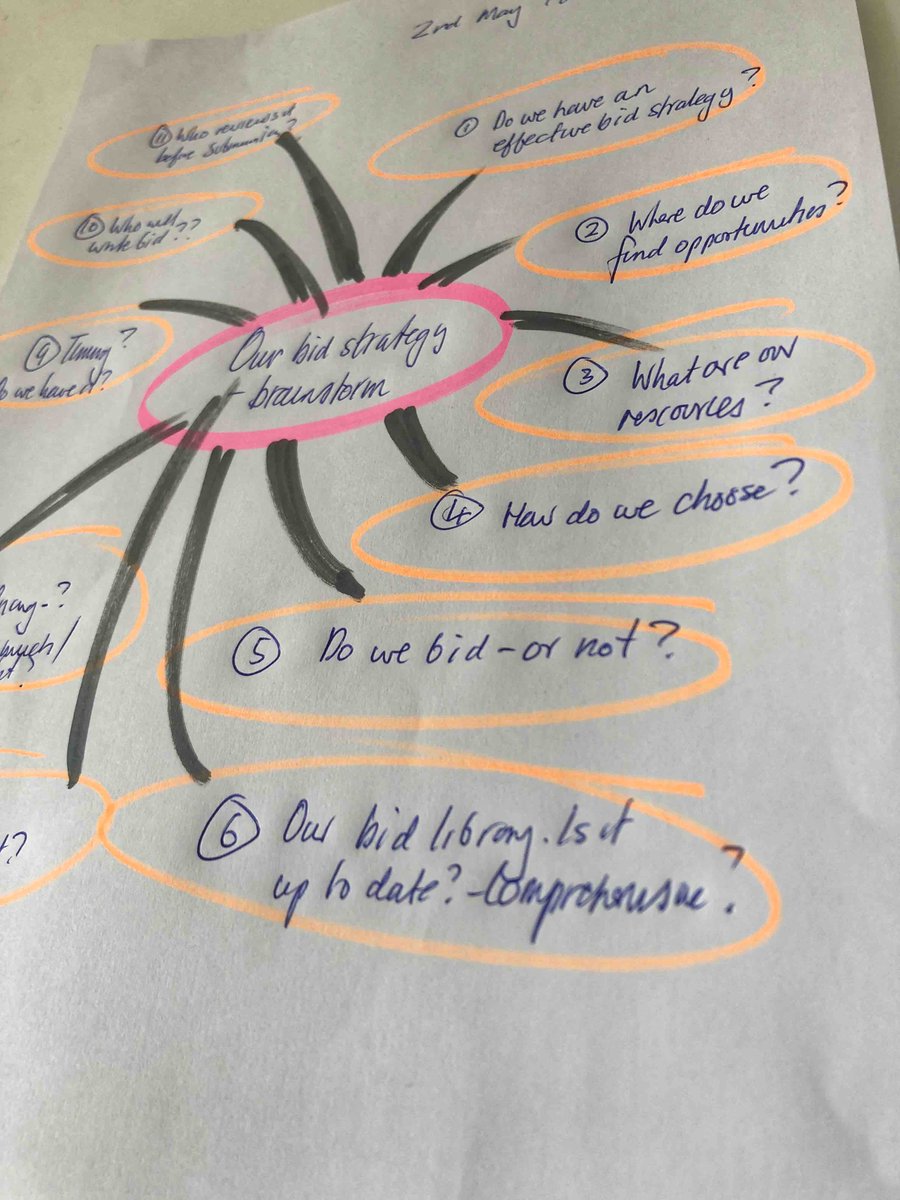 2nd May
Our bid strategy
- brainstorm
① Do we have an
effective bid strategy?
② Where do we
find opportunities?
③ What are our
rescources?
④ How do we choose?
⑤ Do we bid - or not?
⑥ Our bid library. Is it
up to date? - Comprehensive?
t?
?
⑨ Timing?
Do we have it?
⑩ Who will
write bid??
⑪ Who reviews it
before submission?